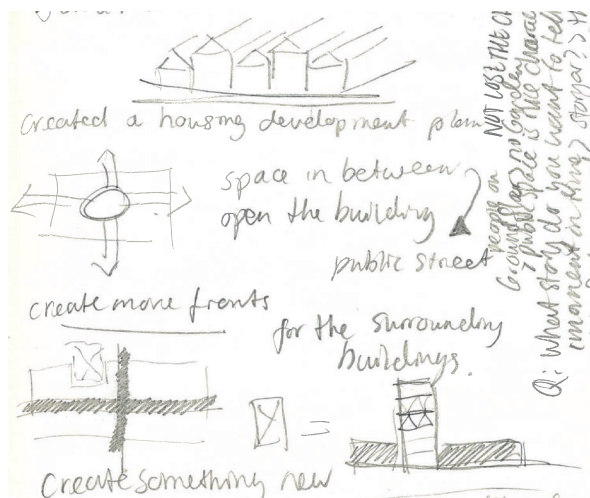 created a housing development plan
space in between
open the building
public street
create more fronts
for the surrounding
buildings.
Create something new
NOT LOSE THE
people on
Ground floor > no Garden
> public space is the
Q: What story do you want to tell